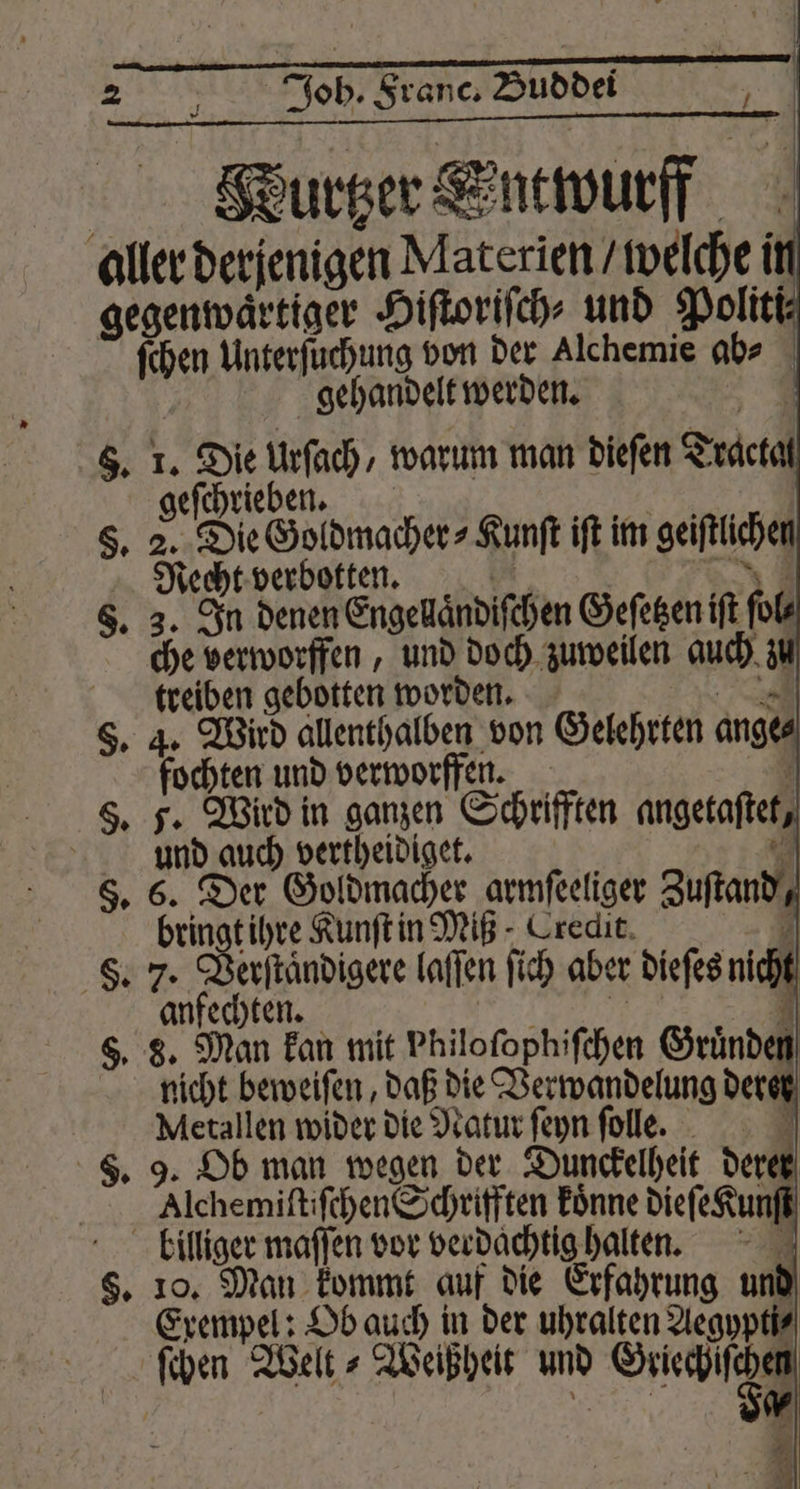 2 Joh. Franc. Buddei
Kurtzer Entwurff
aller derjenigen Materien / welche in
gegenwaͤrtiger Hiſtoriſch- und Politi-
ſchen Unterſuchung von der Alchemie ab-
gehandelt werden.
§. 1. Die Urſach, warum man dieſen Tractat
geſchrieben.
§. 2. Die Goldmacher-Kunſt iſt im geiſtlichen
Recht verbotten.
§. 3. In denen Engellaͤndiſchen Geſetzen iſt ſol-
che verworffen, und doch zuweilen auch zu
treiben gebotten worden.
§. 4. Wird allenthalben von Gelehrten ange-
fochten und verworffen.
§. 5. Wird in ganzen Schrifften angetaſtet,
und auch vertheidiget.
§. 6. Der Goldmacher armſeeliger Zuſtand,
bringt ihre Kunſt in Miß-Credit.
§. 7. Verſtaͤndigere laſſen ſich aber dieſes nicht
anfechten.
§. 8. Man kan mit Philoſophiſchen Gruͤnden
nicht beweiſen, daß die Verwandelung derer
Metallen wider die Natur ſeyn ſolle.
§. 9. Ob man wegen der Dunckelheit derer
Alchemiſtiſchen Schrifften koͤnne dieſe Kunſt
billiger maſſen vor verdaͤchtig halten.
§. 10. Man kommt auf die Erfahrung und
Exempel: Ob auch in der uhralten Aegypti-
ſchen Welt-Weißheit und Griechiſchen
Fa-